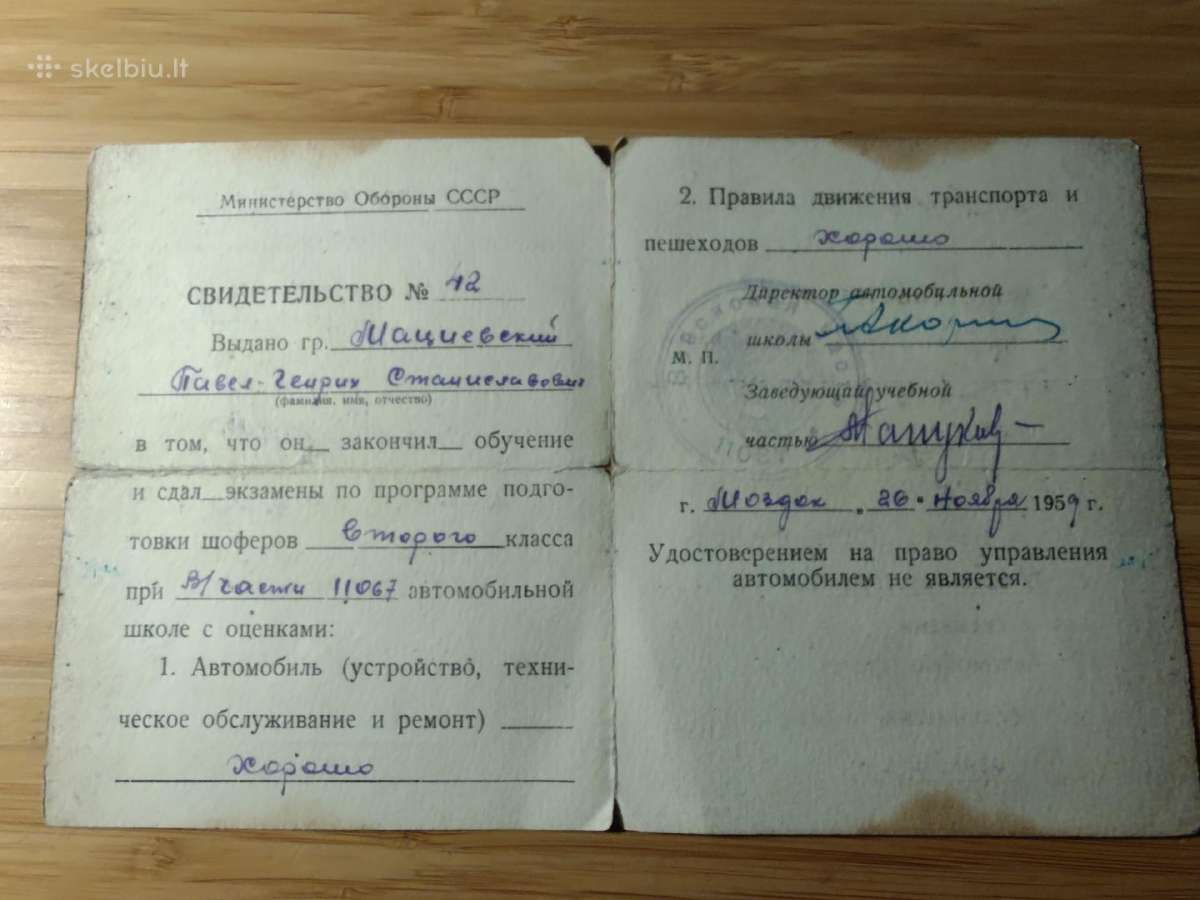 skelbiu.lt
Министерство Обороны СССР
СВИДЕТЕЛЬСТВО № 42
Выдано гр. Мациевский
Павел-Генрих Станиславович
(фамилия, имя, отчество)
в том, что он закончил обучение
и сдал экзамены по программе подго-
товки шоферов второго класса
при В/части 11067 автомобильной
школе с оценками:
1. Автомобиль (устройство, техни-
ческое обслуживание и ремонт)
хорошо
2. Правила движения транспорта и
пешеходов хорошо
Директор автомобильной
школы
М. П.
Заведующий учебной
частью
г. Моздок „26" ноября 1959 г.
Удостоверением на право управления
автомобилем не является.